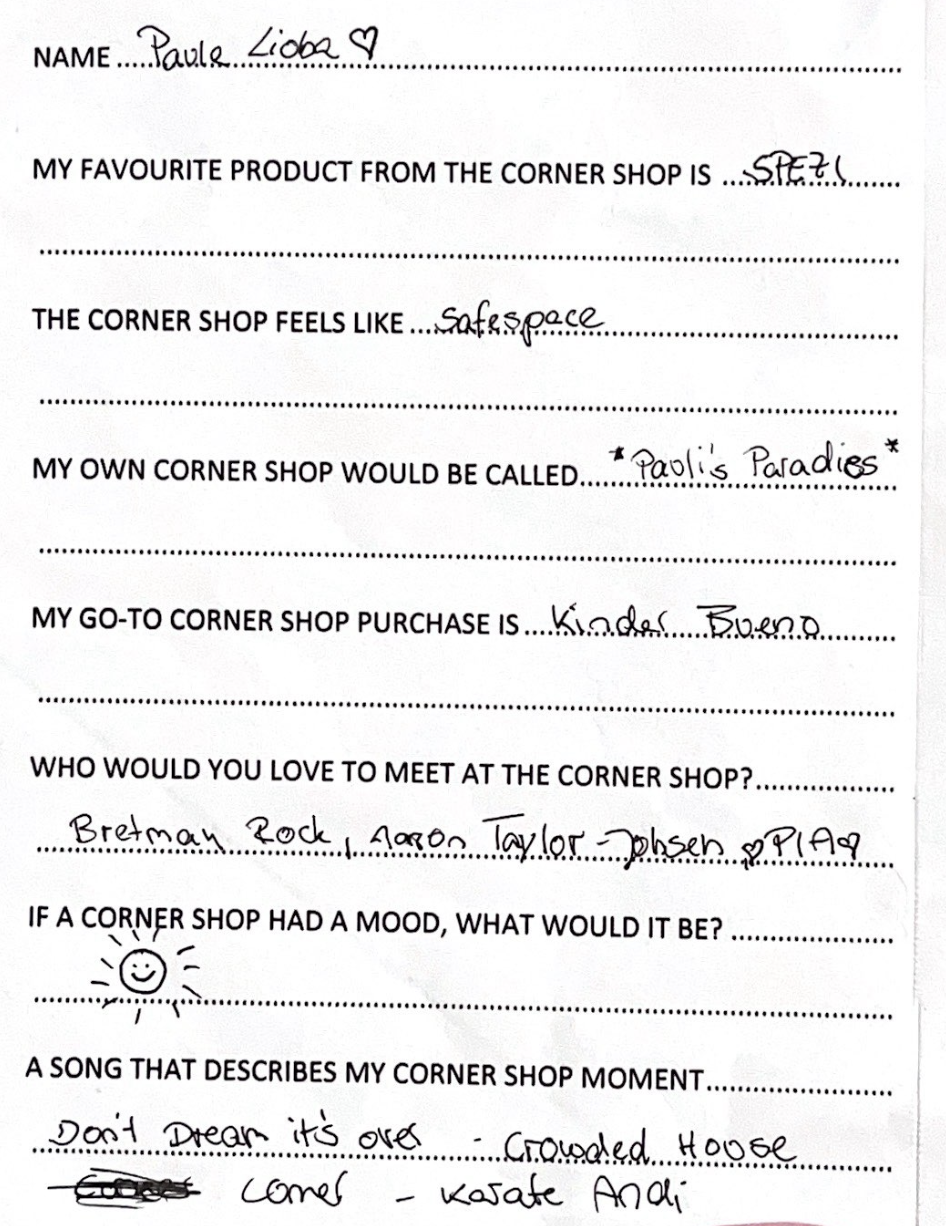 NAME Paule Lioba ♡
MY FAVOURITE PRODUCT FROM THE CORNER SHOP IS SPEZI
THE CORNER SHOP FEELS LIKE Safespace
MY OWN CORNER SHOP WOULD BE CALLED *Paoli's Paradies*
MY GO-TO CORNER SHOP PURCHASE IS Kinder Bueno
WHO WOULD YOU LOVE TO MEET AT THE CORNER SHOP?
Bretman Rock, Aaron Taylor-Johsen ♡PIA♡
IF A CORNER SHOP HAD A MOOD, WHAT WOULD IT BE?
A SONG THAT DESCRIBES MY CORNER SHOP MOMENT
Don't Dream it's over - Crowded House
Corner - Karate Andi